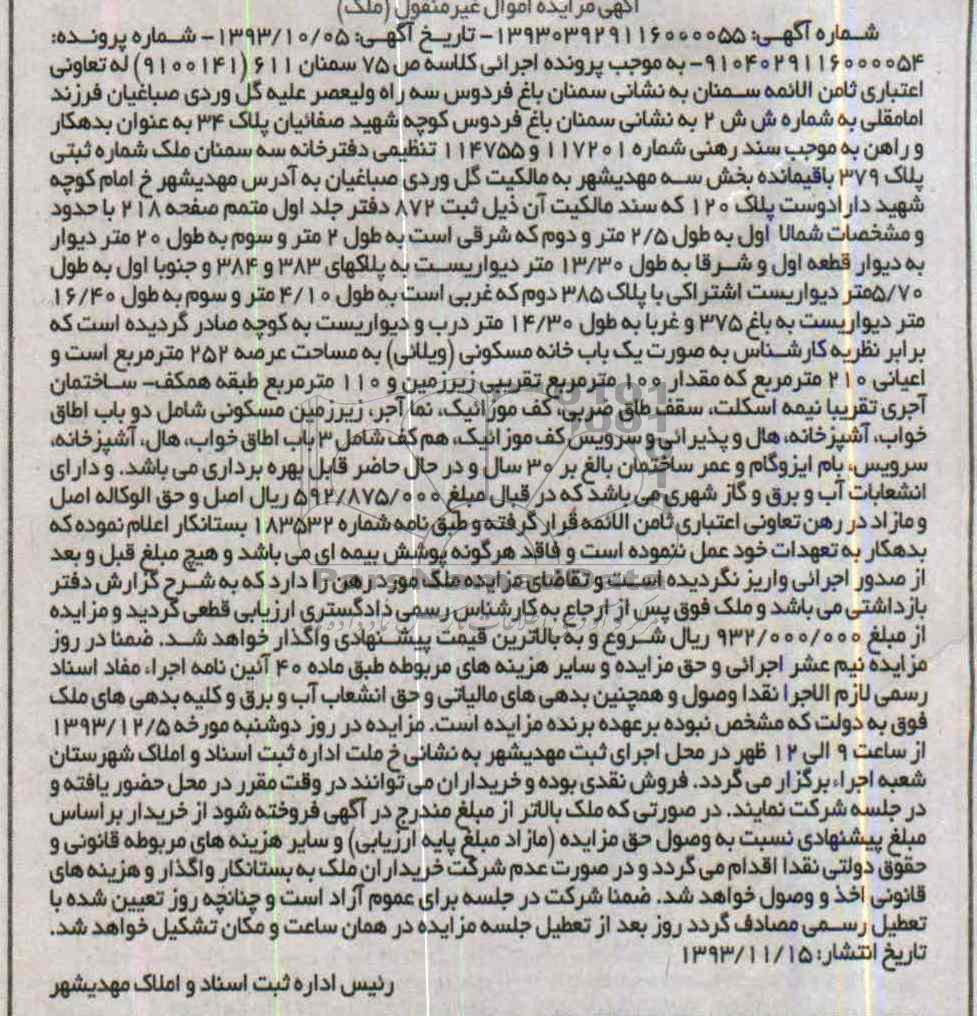 آگهی مزایده اموال غیرمنقول (ملک)
شماره آگهی: ۱۳۹۳۰۳۹۲۹۱۱۶۰۰۰۰۵۵- تاریخ آگهی: ۱۳۹۳/۱۰/۰۵- شماره پرونده:
۹۱۰۴۰۲۹۱۱۶۰۰۰۰۵۴- به موجب پرونده اجرائی کلاسه ص ۷۵ سمنان ۶۱۱ (۹۱۰۰۱۴۱) له تعاونی
اعتباری ثامن الائمه سمنان به نشانی سمنان باغ فردوس سه راه ولیعصر علیه گل وردی صباغیان فرزند
امامقلی به شماره ش ش ۲ به نشانی سمنان باغ فردوس کوچه شهید صفائیان پلاک ۳۴ به عنوان بدهکار
و راهن به موجب سند رهنی شماره ۱۱۷۲۰۱ و ۱۱۴۷۵۵ تنظیمی دفترخانه سه سمنان ملک شماره ثبتی
پلاک ۳۷۹ باقیمانده بخش سه مهدیشهر به مالکیت گل وردی صباغیان به آدرس مهدیشهر خ امام کوچه
شهید دارادوست پلاک ۱۲۰ که سند مالکیت آن ذیل ثبت ۸۷۲ دفتر جلد اول متمم صفحه ۲۱۸ با حدود
و مشخصات شمالا اول به طول ۲/۵ متر و دوم که شرقی است به طول ۲ متر و سوم به طول ۲۰ متر دیوار
به دیوار قطعه اول و شرقا به طول ۱۳/۳۰ متر دیواریست به پلاکهای ۳۸۳ و ۳۸۴ و جنوبا اول به طول
۵/۷۰متر دیواریست اشتراکی با پلاک ۳۸۵ دوم که غربی است به طول ۴/۱۰ متر و سوم به طول ۱۶/۴۰
متر دیواریست به باغ ۳۷۵ و غربا به طول ۱۴/۳۰ متر درب و دیواریست به کوچه صادر گردیده است که
برابر نظریه کارشناس به صورت یک باب خانه مسکونی (ویلائی) به مساحت عرصه ۲۵۲ مترمربع است و
اعیانی ۲۱۰ مترمربع که مقدار ۱۰۰ مترمربع تقریبی زیرزمین و ۱۱۰ مترمربع طبقه همکف- ساختمان
آجری تقریبا نیمه اسکلت، سقف طاق ضربی، کف موزائیک، نما آجر، زیرزمین مسکونی شامل دو باب اطاق
خواب، آشپزخانه، هال و پذیرائی و سرویس کف موزائیک، هم کف شامل ۳ باب اطاق خواب، هال، آشپزخانه،
سرویس، بام ایزوگام و عمر ساختمان بالغ بر ۳۰ سال و در حال حاضر قابل بهره برداری می باشد. و دارای
انشعابات آب و برق و گاز شهری می باشد که در قبال مبلغ ۵۹۲/۸۷۵/۰۰۰ ریال اصل و حق الوکاله اصل
و مازاد در رهن تعاونی اعتباری ثامن الائمه قرار گرفته و طبق نامه شماره ۱۸۳۵۳۲ بستانکار اعلام نموده که
بدهکار به تعهدات خود عمل ننموده است و فاقد هرگونه پوشش بیمه ای می باشد و هیچ مبلغ قبل و بعد
از صدور اجرائی واریز نگردیده است و تقاضای مزایده ملک مورد رهن را دارد که به شرح گزارش دفتر
بازداشتی می باشد و ملک فوق پس از ارجاع به کارشناس رسمی دادگستری ارزیابی قطعی گردید و مزایده
از مبلغ ۹۳۲/۰۰۰/۰۰۰ ریال شروع و به بالاترین قیمت پیشنهادی واگذار خواهد شد. ضمنا در روز
مزایده نیم عشر اجرائی و حق مزایده و سایر هزینه های مربوطه طبق ماده ۴۰ آئین نامه اجراء مفاد اسناد
رسمی لازم الاجرا نقدا وصول و همچنین بدهی های مالیاتی و حق انشعاب آب و برق و کلیه بدهی های ملک
فوق به دولت که مشخص نبوده برعهده برنده مزایده است. مزایده در روز دوشنبه مورخه ۱۳۹۳/۱۲/۵
از ساعت ۹ الی ۱۲ ظهر در محل اجرای ثبت مهدیشهر به نشانی خ ملت اداره ثبت اسناد و املاک شهرستان
شعبه اجراء برگزار می گردد. فروش نقدی بوده و خریداران می توانند در وقت مقرر در محل حضور یافته و
در جلسه شرکت نمایند. در صورتی که ملک بالاتر از مبلغ مندرج در آگهی فروخته شود از خریدار براساس
مبلغ پیشنهادی نسبت به وصول حق مزایده (مازاد مبلغ پایه ارزیابی) و سایر هزینه های مربوطه قانونی و
حقوق دولتی نقدا اقدام می گردد و در صورت عدم شرکت خریداران ملک به بستانکار واگذار و هزینه های
قانونی اخذ و وصول خواهد شد. ضمنا شرکت در جلسه برای عموم آزاد است و چنانچه روز تعیین شده با
تعطیل رسمی مصادف گردد روز بعد از تعطیل جلسه مزایده در همان ساعت و مکان تشکیل خواهد شد.
تاریخ انتشار: ۱۳۹۳/۱۱/۱۵
رئیس اداره ثبت اسناد و املاک مهدیشهر